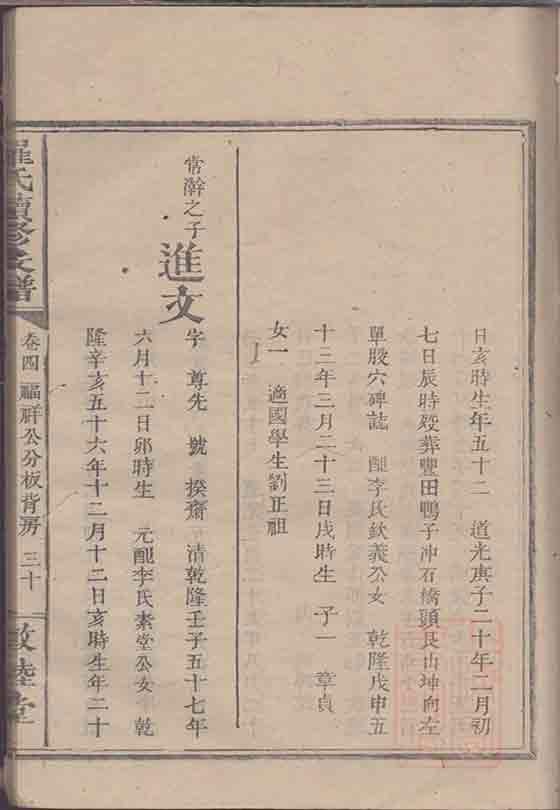 日亥時生年五十二　道光庚子二十年二月初
七日辰時歿葬豐田鴨子冲石橋頭艮山坤向左
單股穴碑誌　配李氏欽義公女　乾隆戊申五
十三年三月二十三日戌時生　子一　章貞
女一　適國學生劉正祖
常澣之子　進文
字　尊先　號　揆齋　清乾隆壬子五十七年
六月十二日卯時生　元配李氏素堂公女　乾
隆辛亥五十六年十二月十二日亥時生年二十
羅氏續修支譜
卷四　福祥公分板背房　三十
敦睦堂